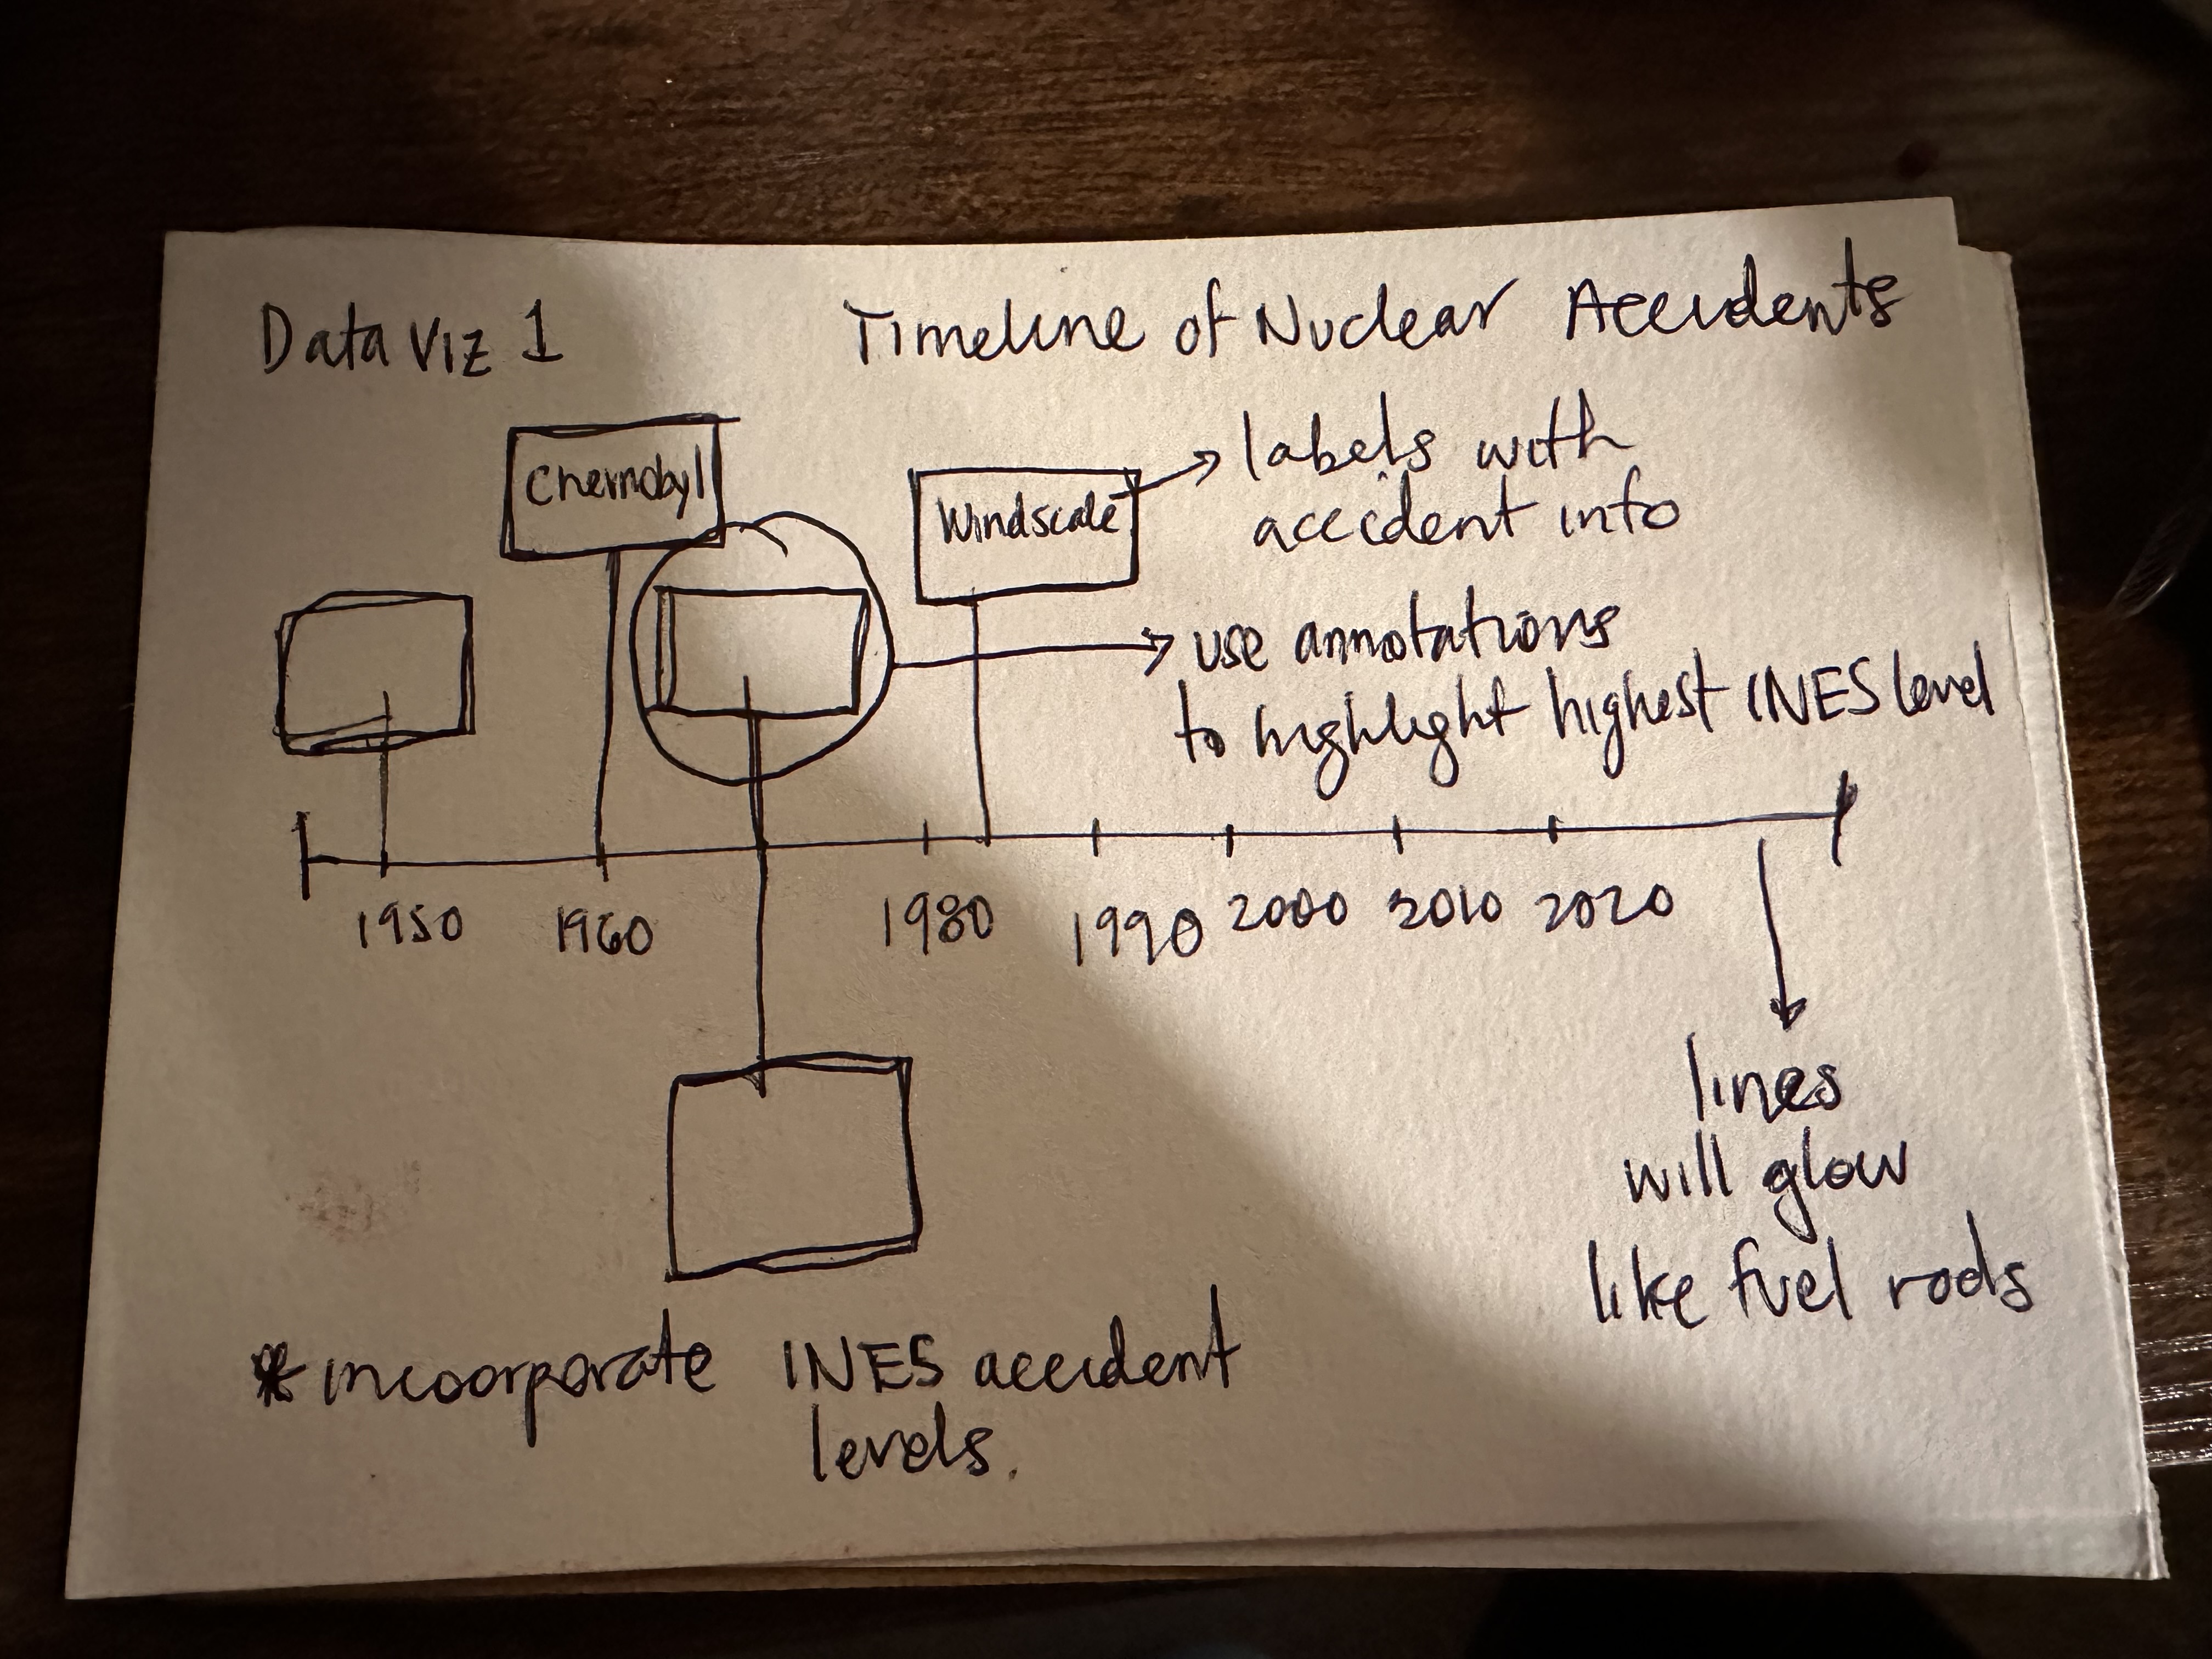 Data Viz 1
Timeline of Nuclear Accidents
Chernobyl
Windscale
labels with
accident info
use annotations
to highlight highest INES level
1950
1960
1980
1990
2000
2010
2020
lines
will glow
like fuel rods
* incorporate INES accident
levels.